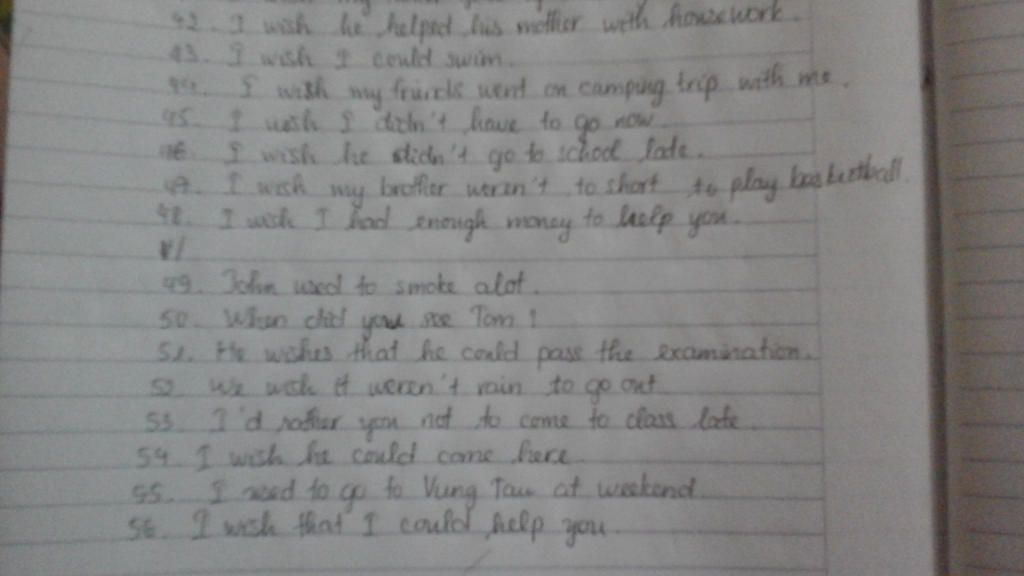 42. I wish he helped his mother with housework.
43. I wish I could swim.
44. I wish my friends went on camping trip with me.
45. I wish I didn't have to go now.
46. I wish he didn't go to school late.
47. I wish my brother weren't to short to play basketball.
48. I wish I had enough money to help you.
V/
49. John used to smoke alot.
50. When did you see Tom?
51. He wishes that he could pass the examination.
52. We wish it weren't rain to go out.
53. I'd rather you not to come to class late.
54. I wish he could come here.
55. I used to go to Vung Tau at weekend.
56. I wish that I could help you.